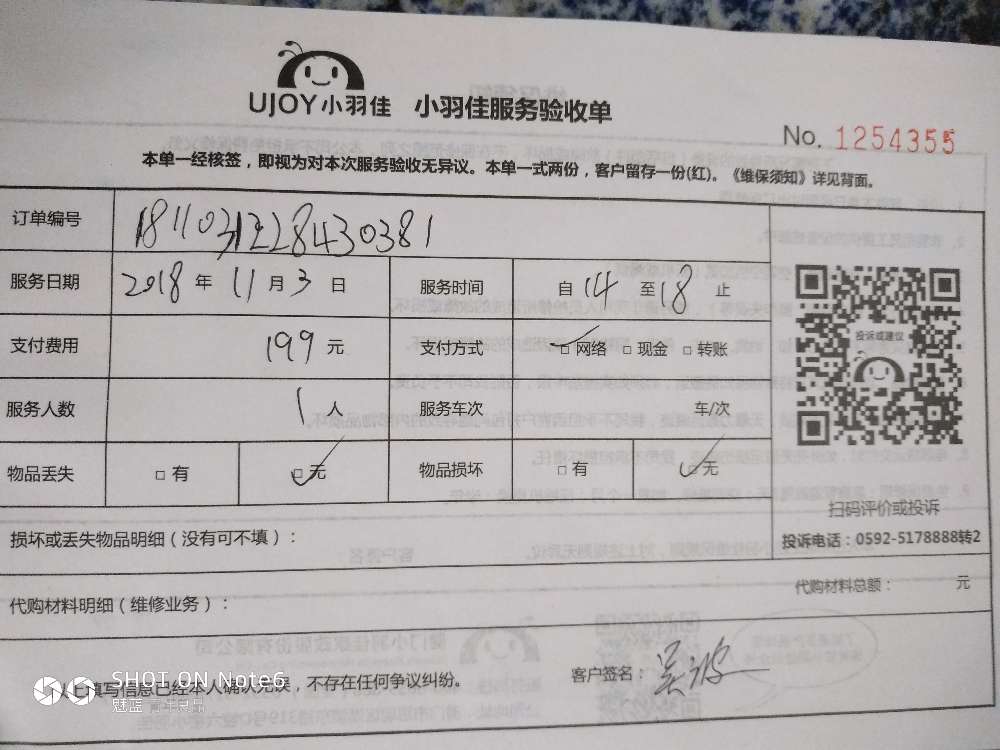 UJOY小羽佳 小羽佳服务验收单
No. 1254355
本单一经核签，即视为对本次服务验收无异议。本单一式两份，客户留存一份(红)。《维保须知》详见背面。
订单编号 1811031228430381
服务日期 2018 年 11 月 3 日 服务时间 自 14 至 18 止
支付费用 199 元 支付方式 □ 网络 □ 现金 □ 转账
服务人数 1 人 服务车次 车/次
物品丢失 □ 有 □ 无 物品损坏 □ 有 □ 无
投诉或建议
扫码评价或投诉
投诉电话：0592-5178888转2
损坏或丢失物品明细（没有可不填）：
代购材料明细（维修业务）： 代购材料总额： 元
以上填写信息已经本人确认无误，不存在任何争议纠纷。 客户签名：吴波
SHOT ON Note6
魅蓝 青年良品